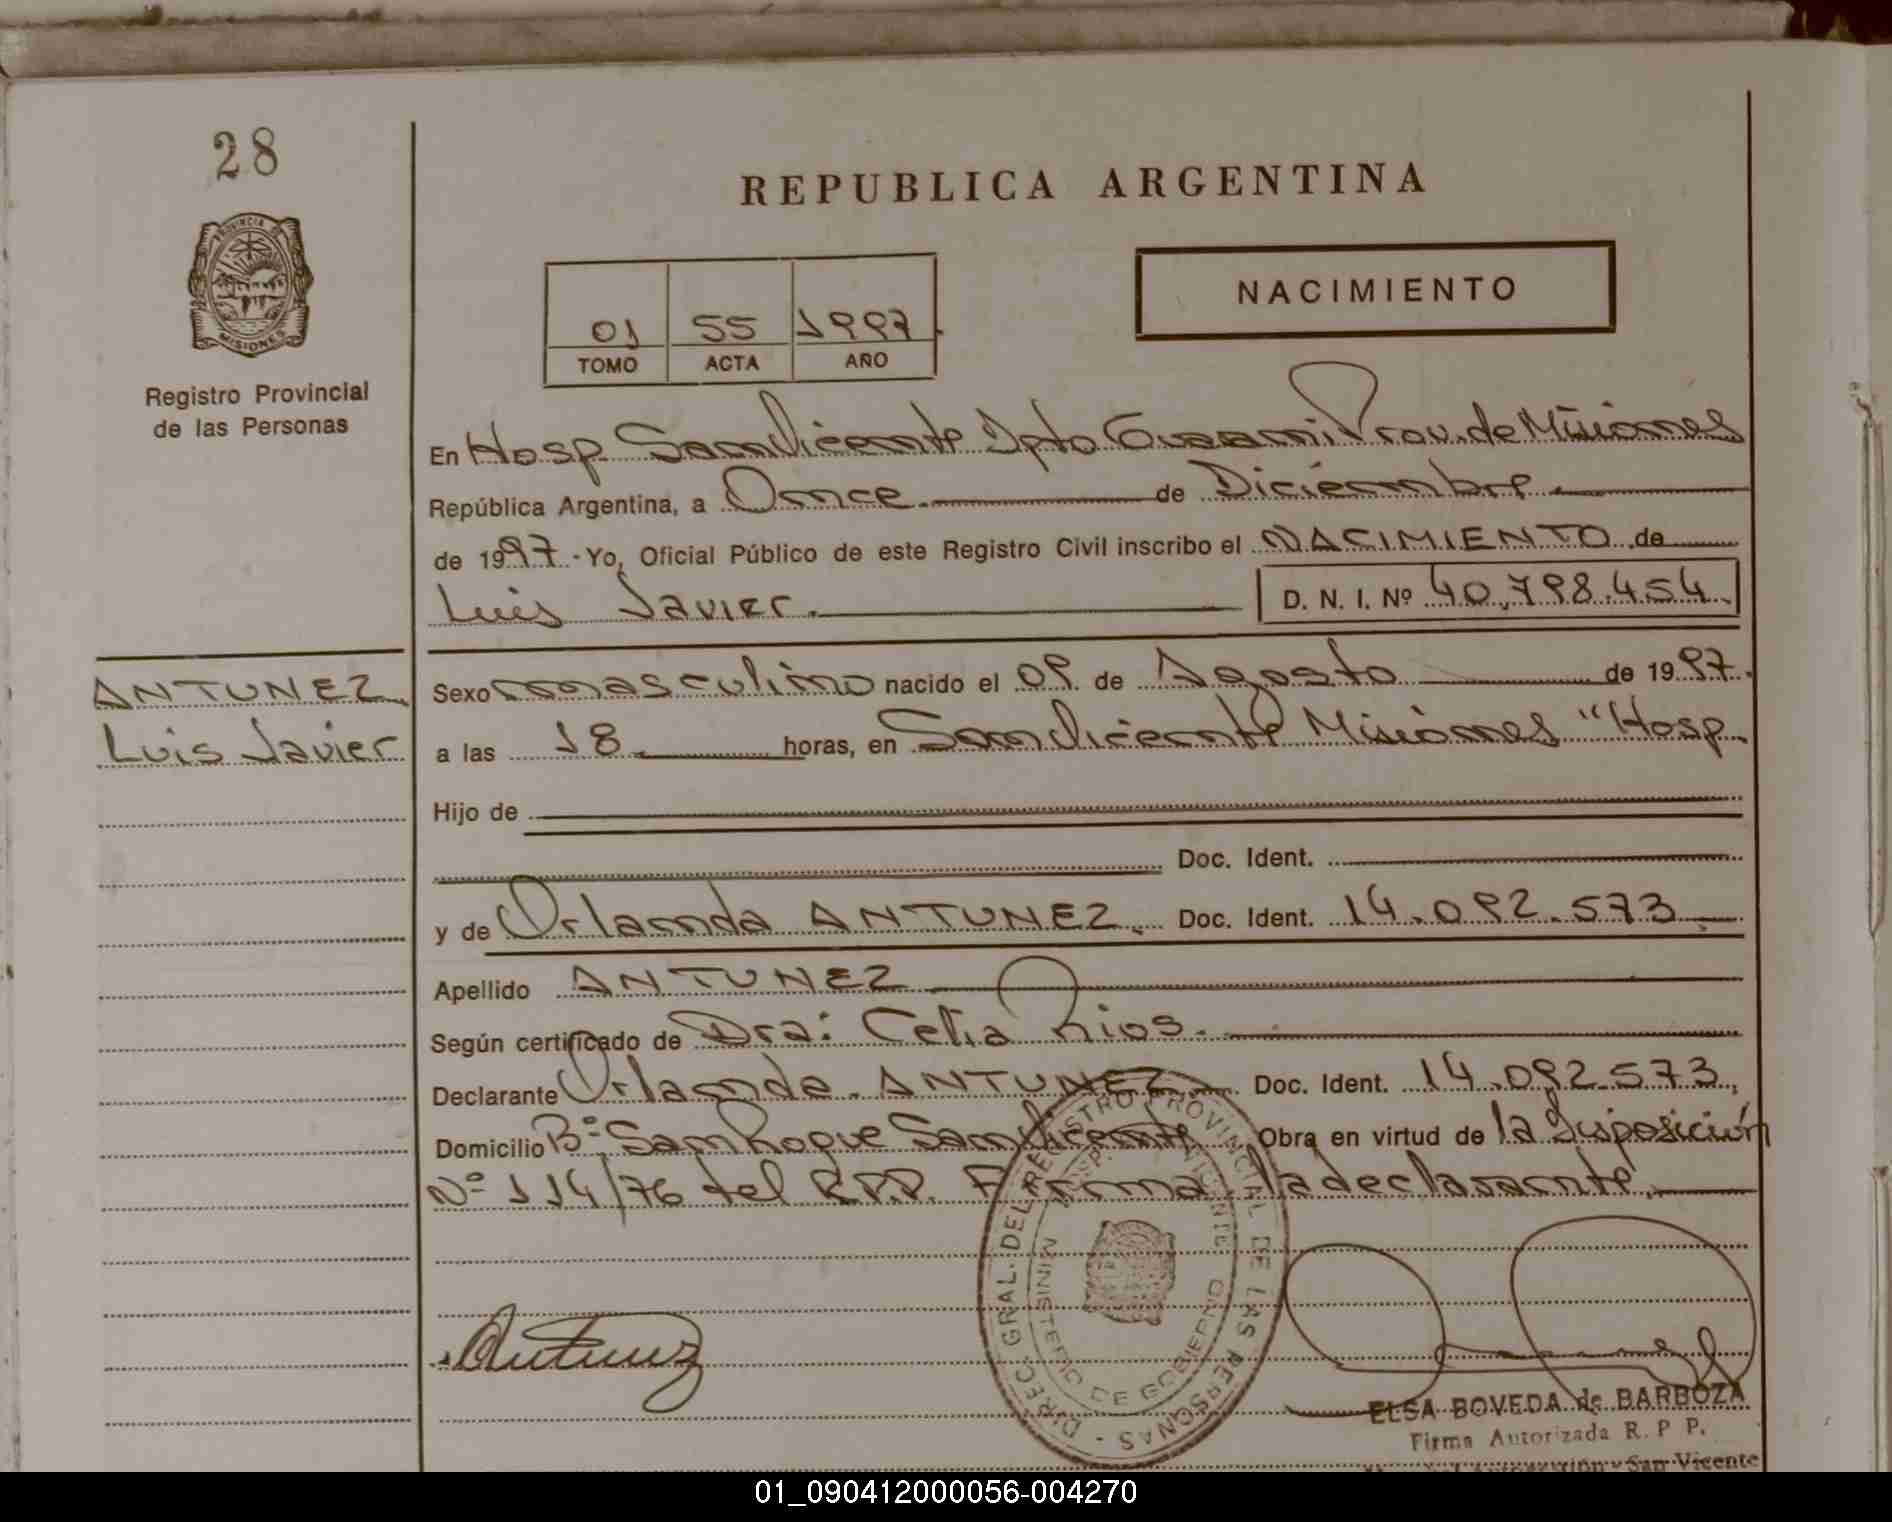 28
REPUBLICA ARGENTINA
PROVINCIA DE
MISIONES
Registro Provincial
de las Personas
01 55 1997
TOMO ACTA AÑO
NACIMIENTO
En Hosp. San Vicente Dpto Guarani Prov. de Misiones
República Argentina, a Once de Diciembre
de 1997 - Yo, Oficial Público de este Registro Civil inscribo el NACIMIENTO de
Luis Javier. D. N. I. Nº 40.798.454
ANTUNEZ
Luis Javier
Sexo masculino nacido el 09 de Agosto de 1997.
a las 18 horas, en San Vicente Misiones "Hosp.
Hijo de
Doc. Ident.
y de Orlanda ANTUNEZ. Doc. Ident. 14.092.573
Apellido ANTUNEZ
Según certificado de Dra: Celia Rios.
Declarante Orlanda ANTUNEZ Doc. Ident. 14.092.573
Domicilio Bº San Roque San Vicente Obra en virtud de la Disposición
Nº 114/76 del R.P.P. Firma la declarante.
DIREC. GRAL. DEL REGISTRO PROVINCIAL DE LAS PERSONAS -
MINISTERIO DE GOBIERNO
HOSP. VICENTE
Antunez
ELSA BOVEDA de BARBOZA
Firma Autorizada R. P. P.
San Vicente
01_090412000056-004270